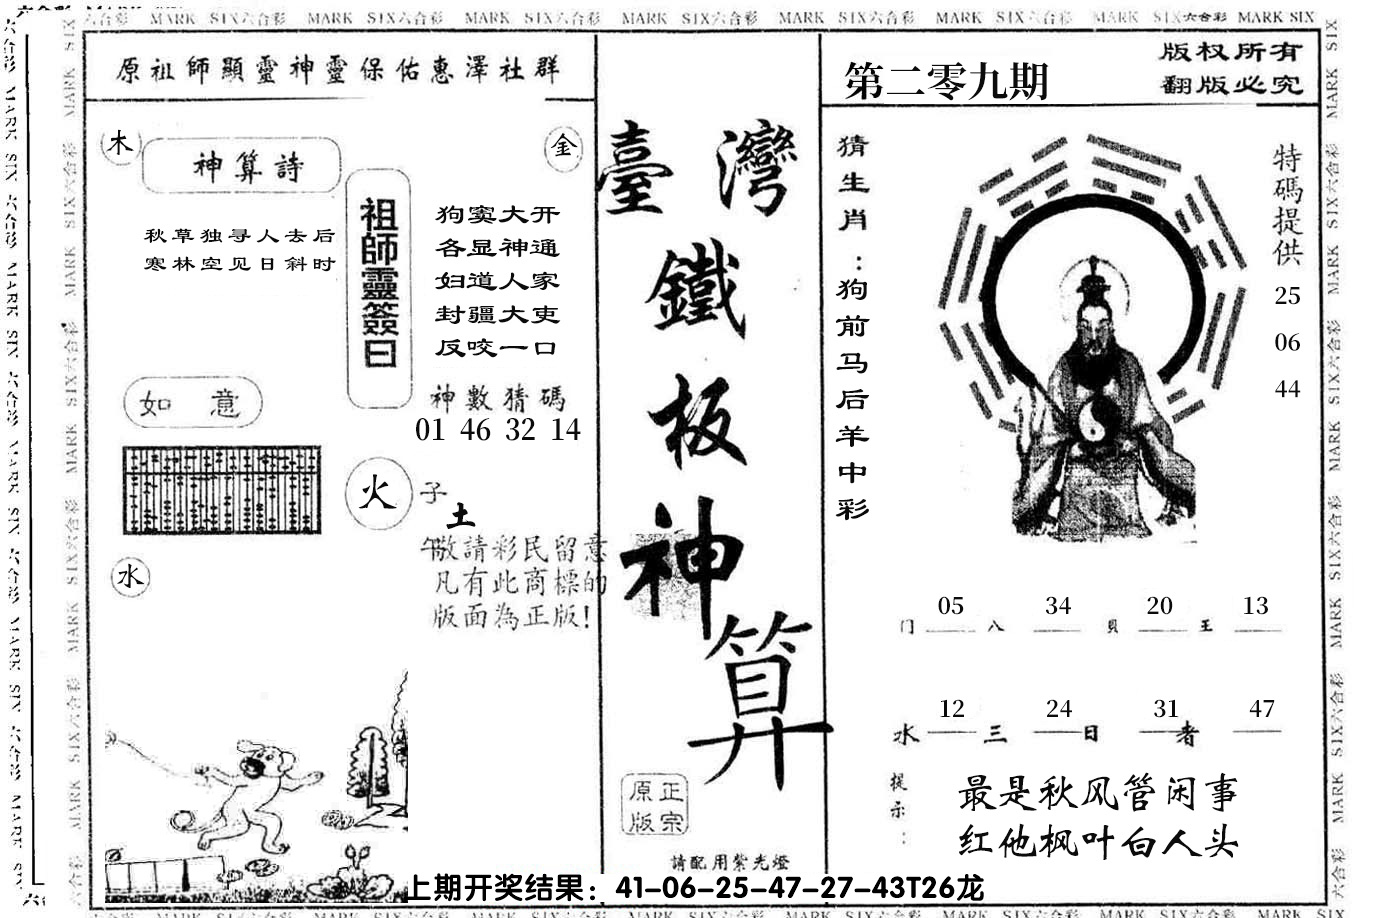 MARK SIX六合彩 MARK SIX六合彩 MARK SIX六合彩 MARK SIX六合彩 MARK SIX六合彩 MARK SIX六合彩 MARK SIX六合彩 MARK SIX
原祖師顯靈神靈保佑惠澤社群
木
神算詩
金
秋草独寻人去后
寒林空见日斜时
祖師靈簽曰
狗窦大开
各显神通
妇道人家
封疆大吏
反咬一口
神數猜碼
01 46 32 14
如 意
火
子
土
午
敬請彩民留意
凡有此商標的
版面為正版!
水
臺灣
鐵
板
神
算
正宗
原版
請配用紫光燈
第二零九期
版权所有
翻版必究
猜生肖:狗前马后羊中彩
特碼提供
25
06
44
门 05 八 34 貝 20 王 13
水 12 三 24 日 31 者 47
提示:
最是秋风管闲事
红他枫叶白人头
上期开奖结果：41-06-25-47-27-43T26龙